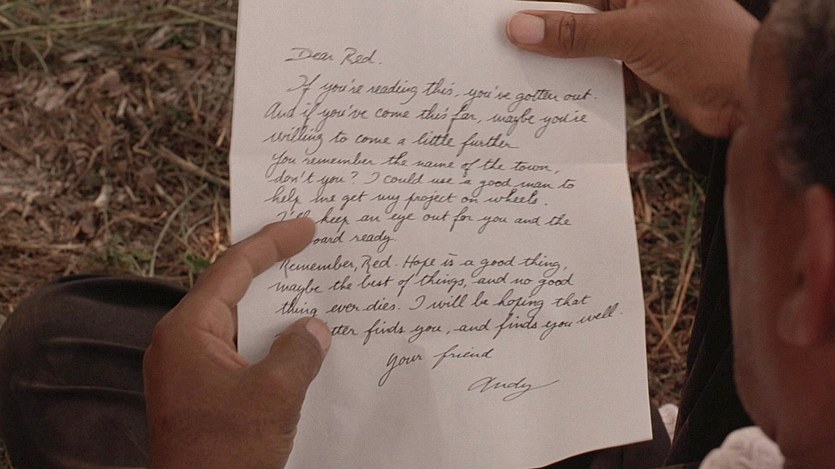 Dear Red.
If you're reading this, you've gotten out.
And if you've come this far, maybe you're
willing to come a little further
You remember the name of the town,
don't you? I could use a good man to
help me get my project on wheels.
I'll keep an eye out for you and the
board ready.
Remember, Red. Hope is a good thing,
maybe the best of things, and no good
thing ever dies. I will be hoping that
finds you, and finds you well.
Your friend
Andy